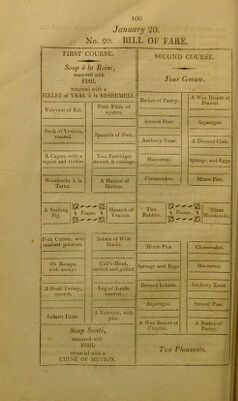 100
January 20.
No. 20. BILL OF FARE.
FIRST COURSE.
Soup à la Reine,
removed with
FISH,
removed with a
FILLET of VEAL à la BESHEMELL
Vol-vent of Eel.
Petit Patés of
oysters.
Neck of Venison,
roasted.
A Capon, with a
ragout and truffles
Two Partridges
stewed, & cabbage.
Woodcocks à la
Tartar.
A Haricot of
Mutton.
A Sucking
Pig.
Frame.
Haunch of
Venison.
Pork Cutlets, with
mashed potatoes.
Salmis of Wild
Ducks.
Ox Rumps,
Calf's Head,
hashed and grilled.
A Small Turkey,
roasted.
Leg of Lamb,
roasted.
Lobster Patés.
Soup Santé,
removed with
FISH,
removed with a
CHINE OF MUTTON.
SECOND COURSE.
Four Grouse.
Basket of Pastry.
A Wax Basket of
Prawns.
Stewed Peas.
Asparagus
Anchovy Toast.
A Dressed Crab.
Maccaroni.
Spinage, and Eggs
Cheesecakes.
Mince Pies.
Two
Rabbits.
Frame.
Three
Woodcocks.
Mince Pies.
Cheesecakes.
Spinage and Eggs
Maccaroni.
Dressed Lobster.
Anchovy Toast.
Asparagus.
Stewed Peas.
A Wax Basket of
Crayfish.
A Basket of
Pastry.
Two Pheasants.